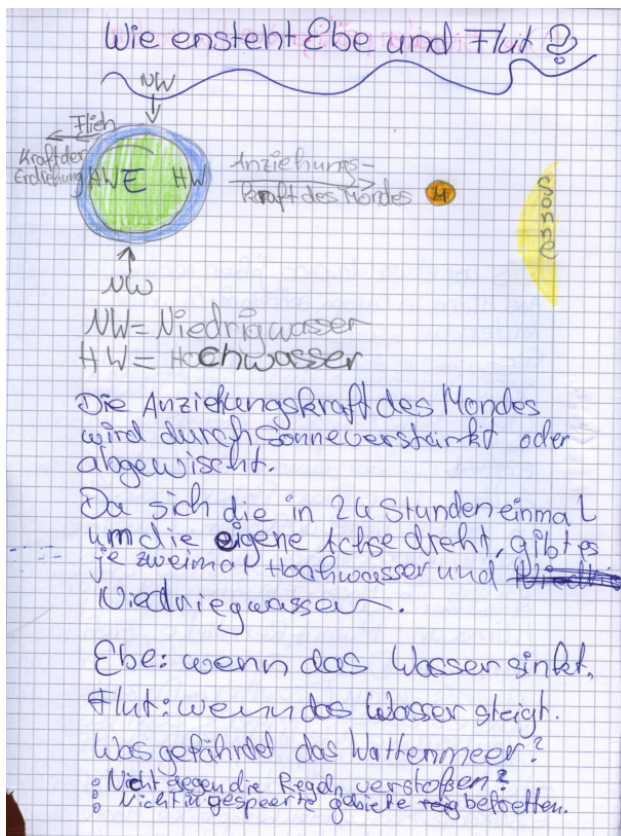 Wie ensteht Ebe und Flut?
NW
Flieh
Kraft der
Erdrehung
HW E HW
Anziehungs-
kraft des Mondes
M
Sonne
NW
NW = Niedrigwasser
HW = Hochwasser
Die Anziehungskraft des Mondes
wird durch Sonne verstärkt oder
abgewischt.
Da sich die in 24 Stunden einmal
um die eigene Achse dreht, gibt es
je zweimal Hochwasser und
Niedriegwasser.
Ebe: wenn das Wasser sinkt.
Flut: wenn das Wasser steigt.
Was gefährdet das Wattenmeer?
Nicht gegen die Regeln verstoßen?
Nicht in gespeerte gebiete betretten.